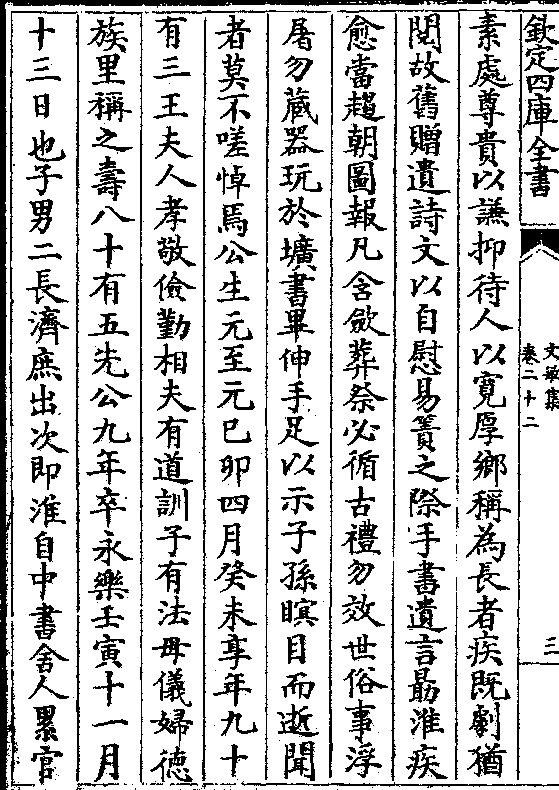 欽定四庫全書
文敏集
卷二十二
三
素處尊貴以謙抑待人以寬厚鄉稱為長者疾既劇猶
閱故舊贈遺詩文以自慰易簀之際手書遺言勗淮疾
愈當趨朝圖報凡含歛葬祭必循古禮勿效世俗事浮
屠勿蔵器玩於壙書畢伸手足以示子孫瞑目而逝聞
者莫不嗟悼焉公生元至元己卯四月癸未享年九十
有三王夫人孝敬儉勤相夫有道訓子有法母儀婦徳
族里稱之壽八十有五先公九年卒永樂壬寅十一月
十三日也子男二長濟庶出次即淮自中書舍人累官